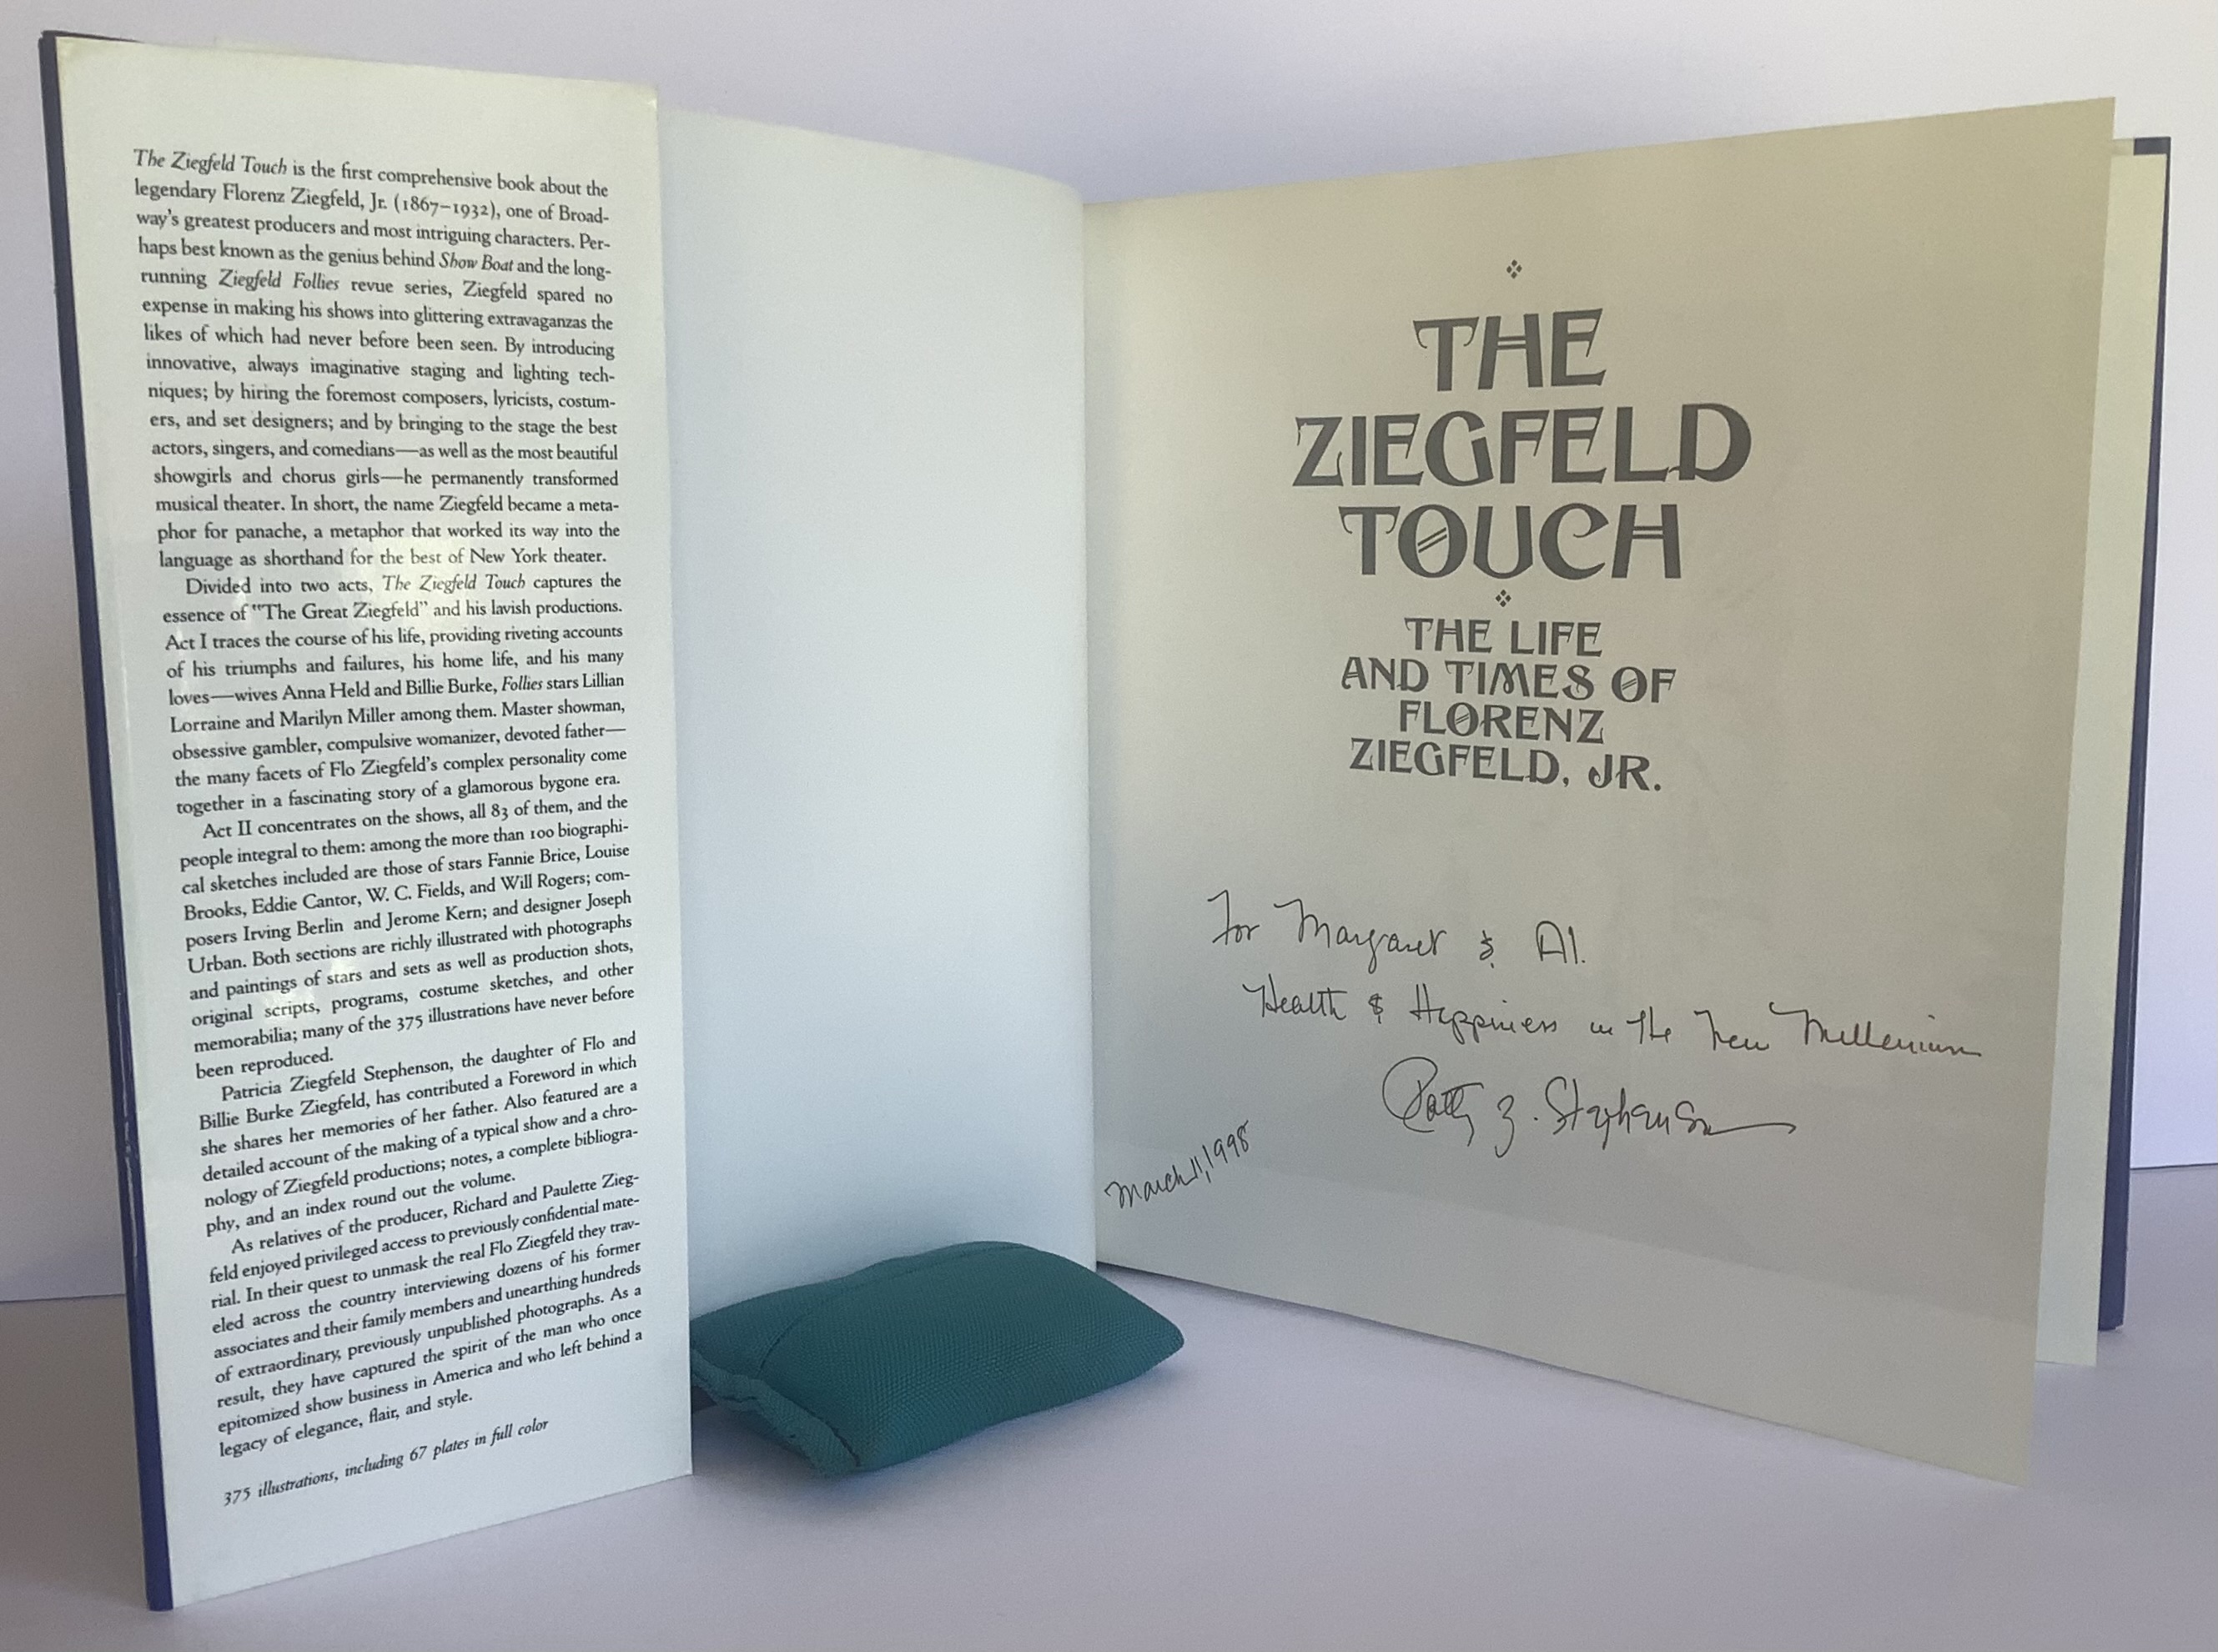 The Ziegfeld Touch is the first comprehensive book about the
legendary Florenz Ziegfeld, Jr. (1867–1932), one of Broad-
way's greatest producers and most intriguing characters. Per-
haps best known as the genius behind Show Boat and the long-
running Ziegfeld Follies revue series, Ziegfeld spared no
expense in making his shows into glittering extravaganzas the
likes of which had never before been seen. By introducing
innovative, always imaginative staging and lighting tech-
niques; by hiring the foremost composers, lyricists, costum-
ers, and set designers; and by bringing to the stage the best
actors, singers, and comedians—as well as the most beautiful
showgirls and chorus girls—he permanently transformed
musical theater. In short, the name Ziegfeld became a meta-
phor for panache, a metaphor that worked its way into the
language as shorthand for the best of New York theater.
Divided into two acts, The Ziegfeld Touch captures the
essence of "The Great Ziegfeld" and his lavish productions.
Act I traces the course of his life, providing riveting accounts
of his triumphs and failures, his home life, and his many
loves—wives Anna Held and Billie Burke, Follies stars Lillian
Lorraine and Marilyn Miller among them. Master showman,
obsessive gambler, compulsive womanizer, devoted father—
the many facets of Flo Ziegfeld's complex personality come
together in a fascinating story of a glamorous bygone era.
Act II concentrates on the shows, all 83 of them, and the
people integral to them: among the more than 100 biographi-
cal sketches included are those of stars Fannie Brice, Louise
Brooks, Eddie Cantor, W. C. Fields, and Will Rogers; com-
posers Irving Berlin and Jerome Kern; and designer Joseph
Urban. Both sections are richly illustrated with photographs
and paintings of stars and sets as well as production shots,
original scripts, programs, costume sketches, and other
memorabilia; many of the 375 illustrations have never before
been reproduced.
Patricia Ziegfeld Stephenson, the daughter of Flo and
Billie Burke Ziegfeld, has contributed a Foreword in which
she shares her memories of her father. Also featured are a
detailed account of the making of a typical show and a chro-
nology of Ziegfeld productions; notes, a complete bibliogra-
phy, and an index round out the volume.
As relatives of the producer, Richard and Paulette Zieg-
feld enjoyed privileged access to previously confidential mate-
rial. In their quest to unmask the real Flo Ziegfeld they trav-
eled across the country interviewing dozens of his former
associates and their family members and unearthing hundreds
of extraordinary, previously unpublished photographs. As a
result, they have captured the spirit of the man who once
epitomized show business in America and who left behind a
legacy of elegance, flair, and style.
375 illustrations, including 67 plates in full color
THE
ZIEGFELD
TOUCH
THE LIFE
AND TIMES OF
FLORENZ
ZIEGFELD, JR.
For Margaret & Al.
Health & Happiness in the New Millenium
Patty Z. Stephenson
March 11, 1998